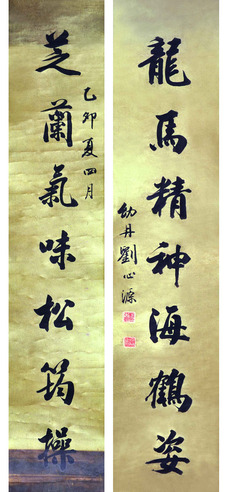 龍馬精神海鶴姿
幼丹劉心源
乙卯夏四月
芝蘭氣味松筠操